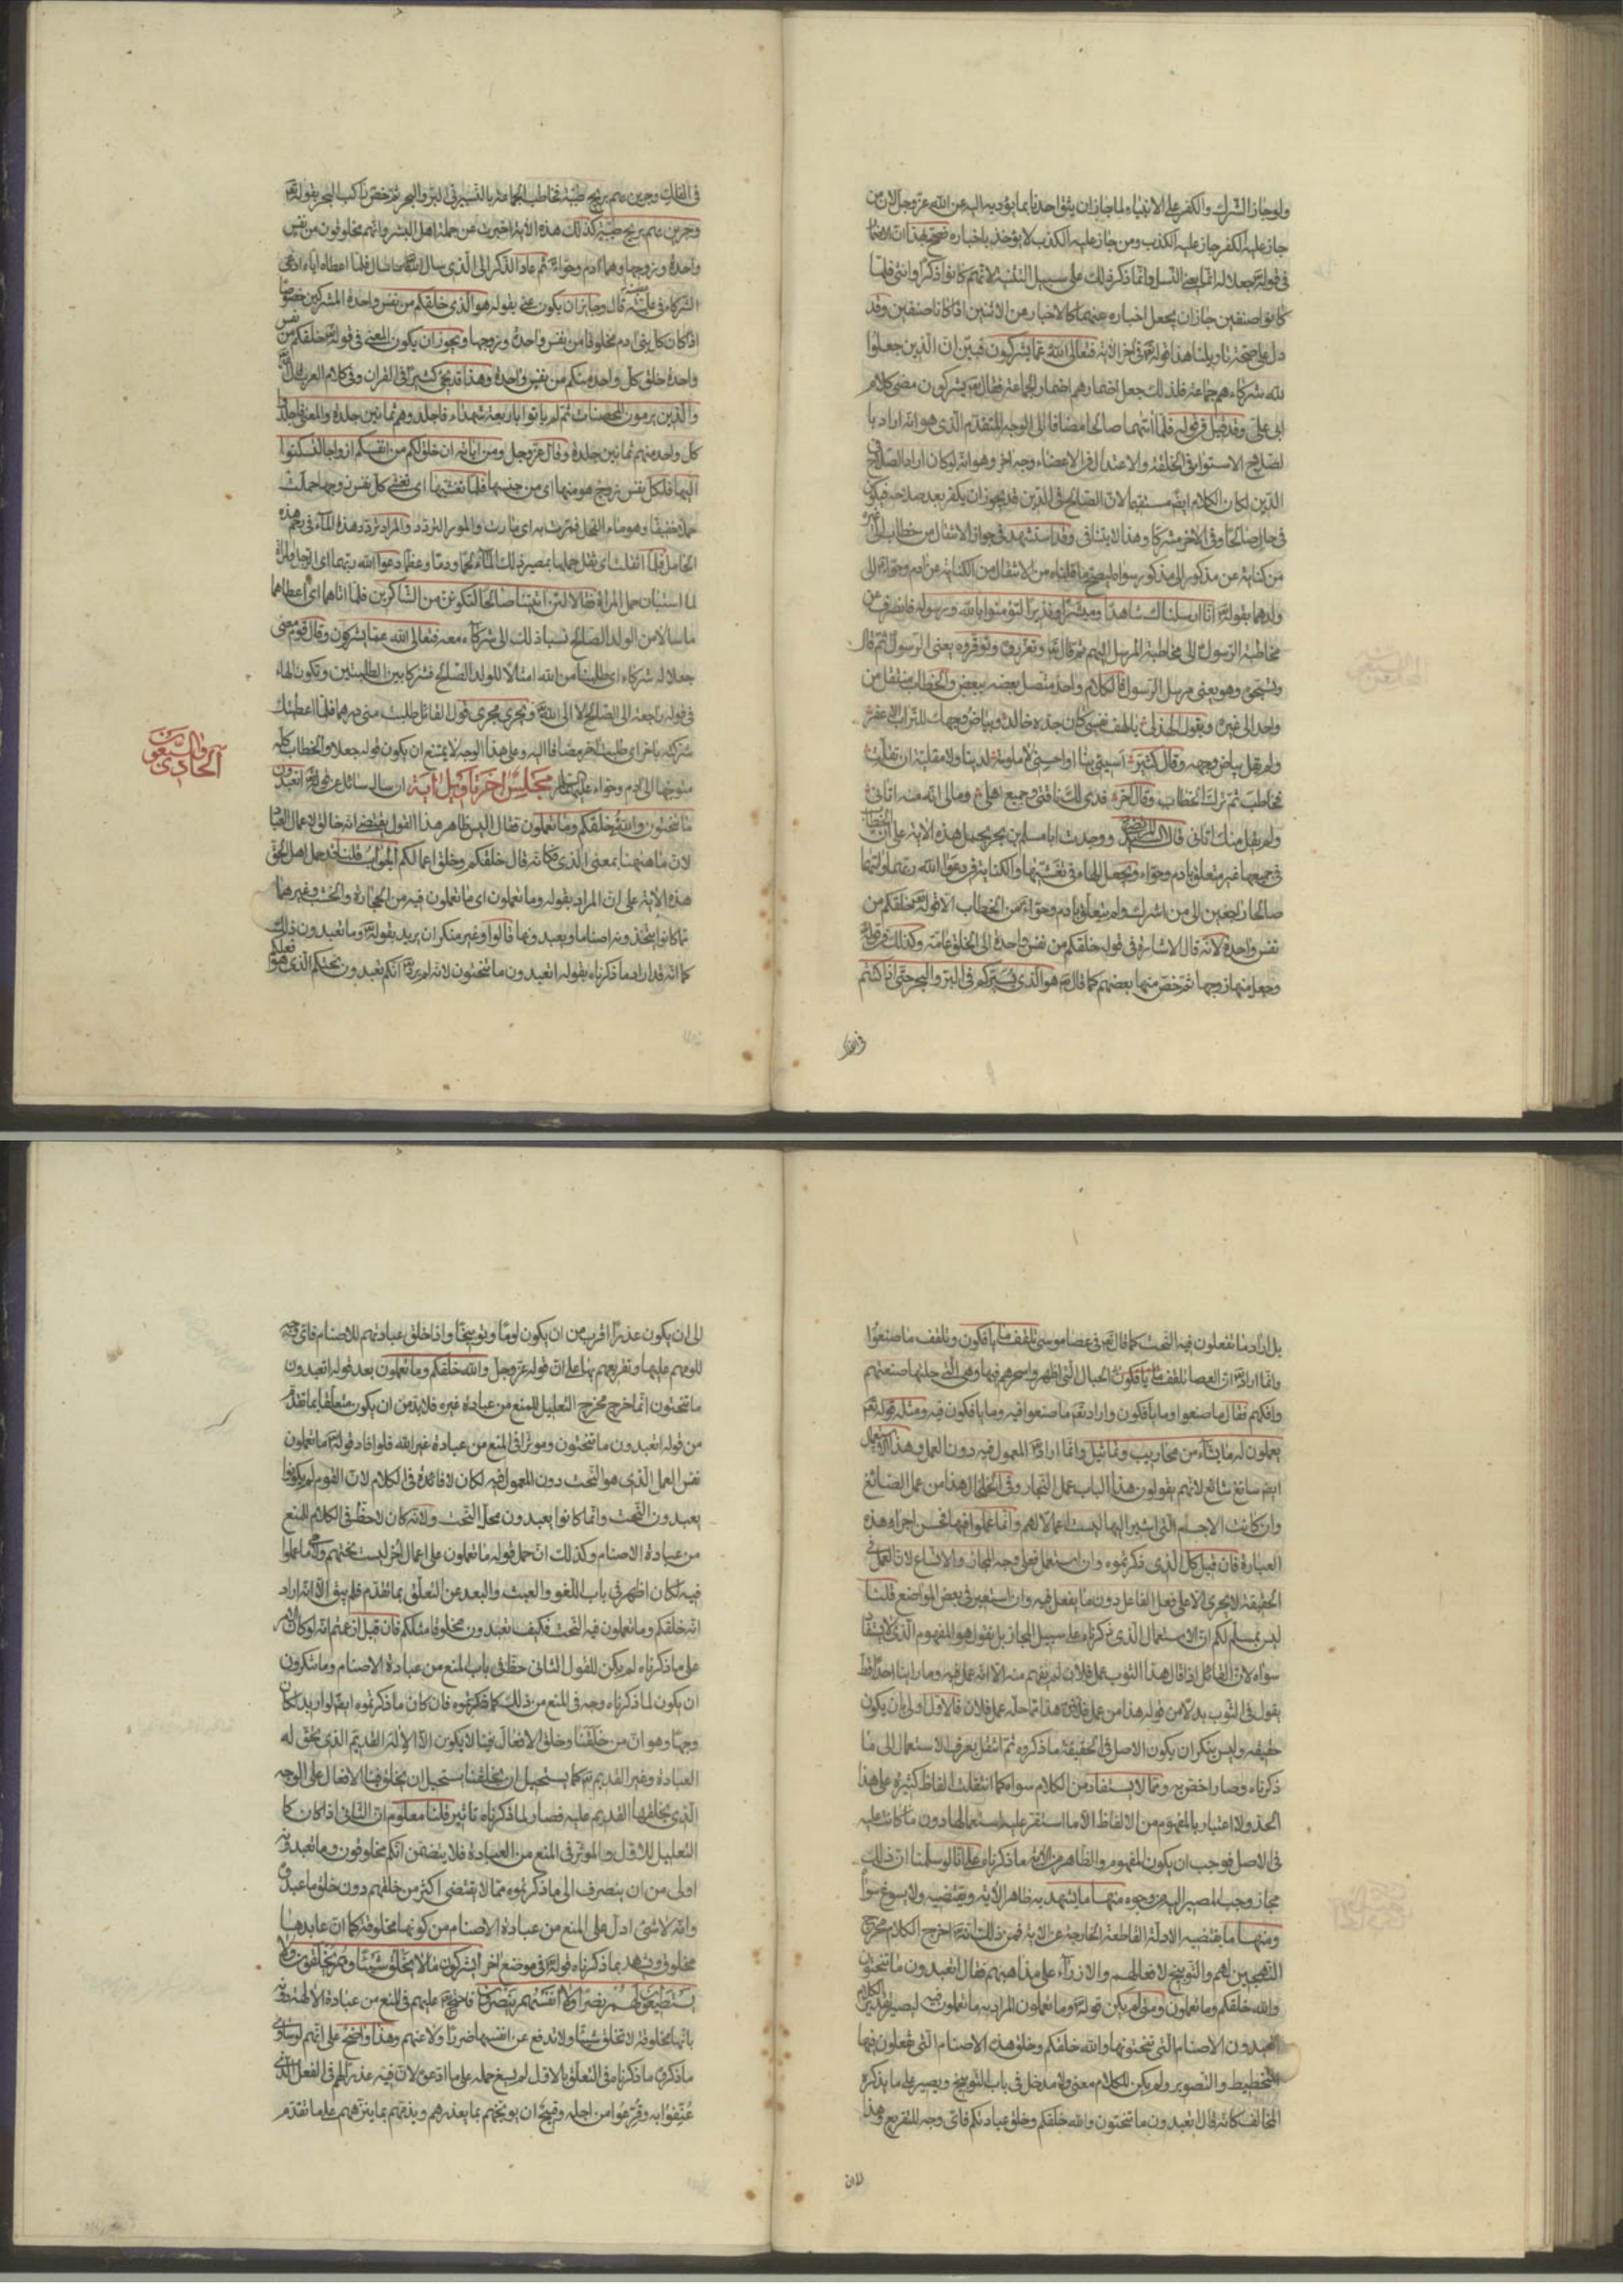 ولو جاز الشرك والكفر على الانبياء لما جاز ان يثق احدنا بما يؤديه اليه عن الله عز وجل لان من
جاز عليه الكفر جاز عليه الكذب ومن جاز عليه الكذب لا يؤخذ باخباره فصح بهذا ان الاضمار
في قوله تعالى جعلا له انما يعني النسل وانما ذكر ذلك على سبيل التثنية لانهم كانوا ذكرا وانثى فلما
كانوا صنفين جاز ان يجعل اخباره عنهما كالاخبار عن الاثنين اذا كانا صنفين وقد
دل على صحة تاويلنا هذا قوله تعالى في اخر الآية فتعالى الله عما يشركون فبين ان الذين جعلوا
لله شركاء هم جماعة فلذلك جعل اضمارهم اضمار الجماعة فقال يشركون مضى كلام
ابي علي وقد قيل في قوله فلما آتيهما صالحا مضافا الى الوجه المتقدم الذي هو انه اراد با
لصلاح الاستواء في الخلقة والاعتدال في الاعضاء وجه اخر وهو انه لو كان اراد الصلاح في
الدين لكان الكلام ايضا مستقيما لان الصالح في الدين قد يجوز ان يكفر بعد صلاحه فيكون
في حال صالحا وفي الاخر مشركا وهذا لا يتنافى وقد استشهد في جواز الانتقال من خطاب الى غيره
من كناية عن مذكور الى مذكور سواه ليصح ما قلناه من الانتقال من الكناية عن ادم وحواء الى
ولدهما بقوله تعالى انا ارسلناك شاهدا ومبشرا ونذيرا لتؤمنوا بالله ورسوله فانصرف عن
مخاطبة الرسول الى مخاطبة المرسل اليهم ثم قال تعالى وتعزروه وتوقروه يعني الرسول ثم قال
وتسبحوه وهو يعني مرسل الرسول فالكلام واحد متصل بعضه ببعض والخطاب منتقل من
واحد الى غيره ويقول الهذلي يا لهف نفسي كان جدة خالد وبياض وجهك للتراب الاعفر
ولم يقل بياض وجهه وقال كثير اسيئي بنا او احسني لا ملومة لدينا ولا مقلية ان تقلت
فخاطب ثم ترك الخطاب وقال آخر فدى لك ناقتي وجميع اهلي ومالي انه منه اتاني
ولم يقل منك اتاني قال السيد المرتضى ووجدت ابا مسلم بن بحر يحمل هذه الآية على ان الخطاب
في جميعها غير متعلق بآدم وحواء ويجعل الهاء في تغشيها والكناية في دعوا الله ربهما وآتيهما
صالحا راجعين الى من اشرك ولم يتعلق بآدم وحواء من الخطاب الا قوله تعالى خلقكم من
نفس واحدة لانه قال الاشارة في قوله خلقكم من نفس واحدة الى الخلق عامة وكذلك في قوله
وجعل منها زوجها ثم خص منها بعضهم كما قال تعالى هو الذي يسيركم في البر والبحر حتى اذا كنتم
في الفلك
في الفلك وجرين بهم بريح طيبة فخاطب الجماعة بالتسيير في البر والبحر ثم خص راكب البحر بقوله تعالى
وجرين بهم بريح طيبة كذلك هذه الآية اخبرت عن جملة اهل البشر وانهم مخلوقون من نفس
واحدة وزوجها وهما آدم وحواء ثم عاد الذكر الى الذي سال الله تعالى ما سال فلما اعطاه اياه ادعى
الشركاء في عطيته قال وجائز ان يكون عني بقوله هو الذي خلقكم من نفس واحدة المشركين خصوصا
اذا كان كل بني ادم مخلوقا من نفس واحدة وزوجها ويجوز ان يكون المعنى في قوله تعالى خلقكم من نفس
واحدة خلق كل واحد منكم من نفس واحدة وهذا قد يجئ كثيرا في القران وفي كلام العرب قال الله تعالى
والذين يرمون المحصنات ثم لم ياتوا باربعة شهداء فاجلدوهم ثمانين جلدة والمعنى فاجلدوا
كل واحد منهم ثمانين جلدة وقال عز وجل ومن آياته ان خلق لكم من انفسكم ازواجا لتسكنوا
اليها فلكل نفس زوج هو منها اي من جنسها فلما تغشيها اي تغشى كل نفس زوجها حملت
حملا خفيفا وهو ماء الفحل فمرت به اي مارت والمور التردد والمراد تردد هذا الماء في رحم هذه
الحامل فلما اثقلت اي ثقل حملها بمصير ذلك الماء لحما ودما وعظما دعوا الله ربهما اي الرجل والمراة
لما استبان حمل المراة فقالا لئن آتيتنا صالحا لنكونن من الشاكرين فلما اتاهما اي اعطاهما
ما سالا من الولد الصالح نسبا ذلك الى شركاء معه فتعالى الله عما يشركون وقال قوم معنى
جعلا له شركاء اي طلبا من الله امثالا للولد الصالح فشركا بين الطلبتين وتكون الهاء
في قوله له راجعة الى الصالح لا الى الله تعالى ويجري مجرى قول القائل طلبت مني درهما فلما اعطيتك
شركته باخر اي طلبت اخر مضافا اليه وعلى هذا الوجه لا يمتنع ان يكون قوله جعلا والخطاب كله
متوجها الى ادم وحواء عليهما السلام مجلس اخر تأويل آية ان سال سائل عن قوله تعالى اتعبدون
الحادي والسبعون
ما تنحتون والله خلقكم وما تعملون فقال اليس ظاهر هذا القول يقتضي انه خالق لاعمال العباد
لان ما ههنا بمعنى الذي فكانه قال خلقكم وخلق اعمالكم الجواب قلنا قد حمل اهل الحق
هذه الآية على ان المراد بقوله وما تعملون اي ما تعملون فيه من الحجارة والخشب وغيرهما
مما كانوا يتخذونه اصناما ويعبدونها قالوا وغير منكر ان يريد بقوله تعالى وما تعبدون ذلك
كما انه قد اراد ما ذكرناه بقوله اتعبدون ما تنحتون لانه لم يرد تعالى انكم تعبدون نحتكم الذي هو فعلكم
بل اراد ما تفعلون فيه النحت كما قال تعالى في عصا موسى تلقف ما يافكون وتلقف ما صنعوا
وانما اراد تعالى ان العصا تلقف ما يافكون الحبال التي اظهروا سحرهم فيها وهي التي حلتها صنعتهم
وافكهم فقال ما صنعوا وما يافكون واراد تعالى ما صنعوا فيه وما يافكون فيه ومثله قوله تعالى
يعملون له ما يشاء من محاريب وتماثيل وانما اراد تعالى المعمول فيه دون العمل وهذا الاستعمال
ايضا سائغ شائع لانهم يقولون هذا الباب عمل النجار وفي الخلخال هذا من عمل الصائغ
وان كانت الاجسام التي اشير اليها ليست اعمالا لهم وانما عملوا فيها فحسن اجراء هذه
العبارة فان قيل كل الذي ذكرتموه وان استعمل فعلى وجه المجاز والاتساع لان العمل في
الحقيقة لا يجري الا على فعل الفاعل دون ما يفعل فيه وان استعير في بعض المواضع قلنا
ليس نسلم لكم ان الاستعمال الذي ذكرناه على سبيل المجاز بل نقول هو المفهوم الذي لا يستفاد
سواه لان القائل اذا قال هذا الثوب عمل فلان لم يفهم منه الا انه عمل فيه وما راينا احدا قط
يقول في الثوب بدلا من قوله هذا من عمل فلان هذا مما حله عمل فلان فالاول اولى بان يكون
حقيقة وليس ينكر ان يكون الاصل في الحقيقة ما ذكروه ثم انتقل بعرف الاستعمال الى ما
ذكرناه وصار اخص به ومما لا يستفاد من الكلام سواه كما انتقلت الفاظ كثيرة على هذا
الحد ولا اعتبار بالمفهوم من الالفاظ الا ما استقر عليه استعمالها دون ما كانت عليه
في الاصل فوجب ان يكون المفهوم والظاهر من الآية ما ذكرناه على انا لو سلمنا ان ذلك
مجاز وجب المصير اليه من وجوه منها ما يشهد به ظاهر الآية ويقتضيه ولا يسوغ سواه
ومنها ما يقتضيه الادلة القاطعة الخارجة عن الآية فمن ذلك انه تعالى اخرج الكلام مخرج
التهجين لهم والتوبيخ لافعالهم والازراء على مذاهبهم فقال اتعبدون ما تنحتون
والله خلقكم وما تعملون ومتى لم يكن قوله تعالى وما تعملون المراد به ما تعملون فيه ليصير تقدير الكلام
اتعبدون الاصنام التي تنحتونها والله خلقكم وخلق هذه الاصنام التي تفعلون فيها
التخطيط والتصوير ولم يكن للكلام معنى ولا مدخل في باب التوبيخ ويصير على ما يذكره
المخالف كانه قال اتعبدون ما تنحتون والله خلقكم وخلق عبادتكم فاي وجه للتقريع وهذا
لان
الى ان يكون عذرا اقرب من ان يكون لوما وتوبيخا واذا خلق عبادتهم للاصنام فاي وجه
للومهم عليها وتقريعهم بها على ان قوله عز وجل والله خلقكم وما تعملون بعد قوله اتعبدون
ما تنحتون انما خرج مخرج التعليل للمنع من عبادة غيره فلا بد من ان يكون متعلقا بما تقدم
من قوله اتعبدون ما تنحتون ومؤثرا في المنع من عبادة غير الله فلو افاد قوله تعالى ما تعملون
نفس العمل الذي هو النحت دون المعمول فيه لكان لا فائدة في الكلام لان القوم لم يكونوا
يعبدون النحت وانما كانوا يعبدون محل النحت ولانه كان لا حظ في الكلام للمنع
من عبادة الاصنام وكذلك ان حمل قوله ما تعملون على اعمال اخر ليست نحتهم ولا هي ما عملوا
فيه لكان اظهر في باب اللغو والعبث والبعد عن التعلق بما تقدم فلم يبق الا انه اراد
انه خلقكم وما تعملون فيه النحت فكيف تعبدون مخلوقا مثلكم فان قيل لم زعمتم انه لو كان الامر
على ما ذكرناه لم يكن للقول الثاني حظ في باب المنع من عبادة الاصنام وما تنكرون
ان يكون لما ذكرناه وجه في المنع من ذلك كما ان ما ذكرتموه ايضا لو اريد لكان
وجها وهو ان من خلقنا وخلق الافعال فينا لا يكون الا الاله القديم الذي تحق له
العبادة وغير القديم تعالى كما يستحيل ان يخلقنا يستحيل ان يخلق فينا الافعال على الوجه
الذي يخلقها القديم عليه فصار لما ذكرناه تاثير قلنا معلوم ان الثاني اذا كان كا
لتعليل للاول والمؤثر في المنع من العبادة فلان يتضمن انكم مخلوقون وما تعبدونه
اولى من ان ينصرف الى ما ذكرتموه مما لا يقتضي اكثر من خلقهم دون خلق ما عبدوه
وانه لا شئ ادل على المنع من عبادة الاصنام من كونها مخلوقة كما ان عابدها
مخلوق ويشهد بما ذكرناه قوله تعالى في موضع اخر ايشركون ما لا يخلق شيئا وهم يخلقون ولا
يستطيعون لهم نصرا ولا انفسهم ينصرون فاحتج تعالى عليهم في المنع من عبادة الآلهة دونه
بانها مخلوقة لا تخلق شيئا ولا تدفع عن انفسها ضرا ولا عنهم وهذا واضح على انهم لو ساوى
ما ذكروه ما ذكرناه في التعلق بالاول لم يسغ حمله على ما ادعوه لان فيه عذرا لهم في الفعل الذي
عنفوا به وقرعوا من اجله وقبيح ان يوبخهم بما يعذرهم ويذمهم بما ينزههم على ما تقدم